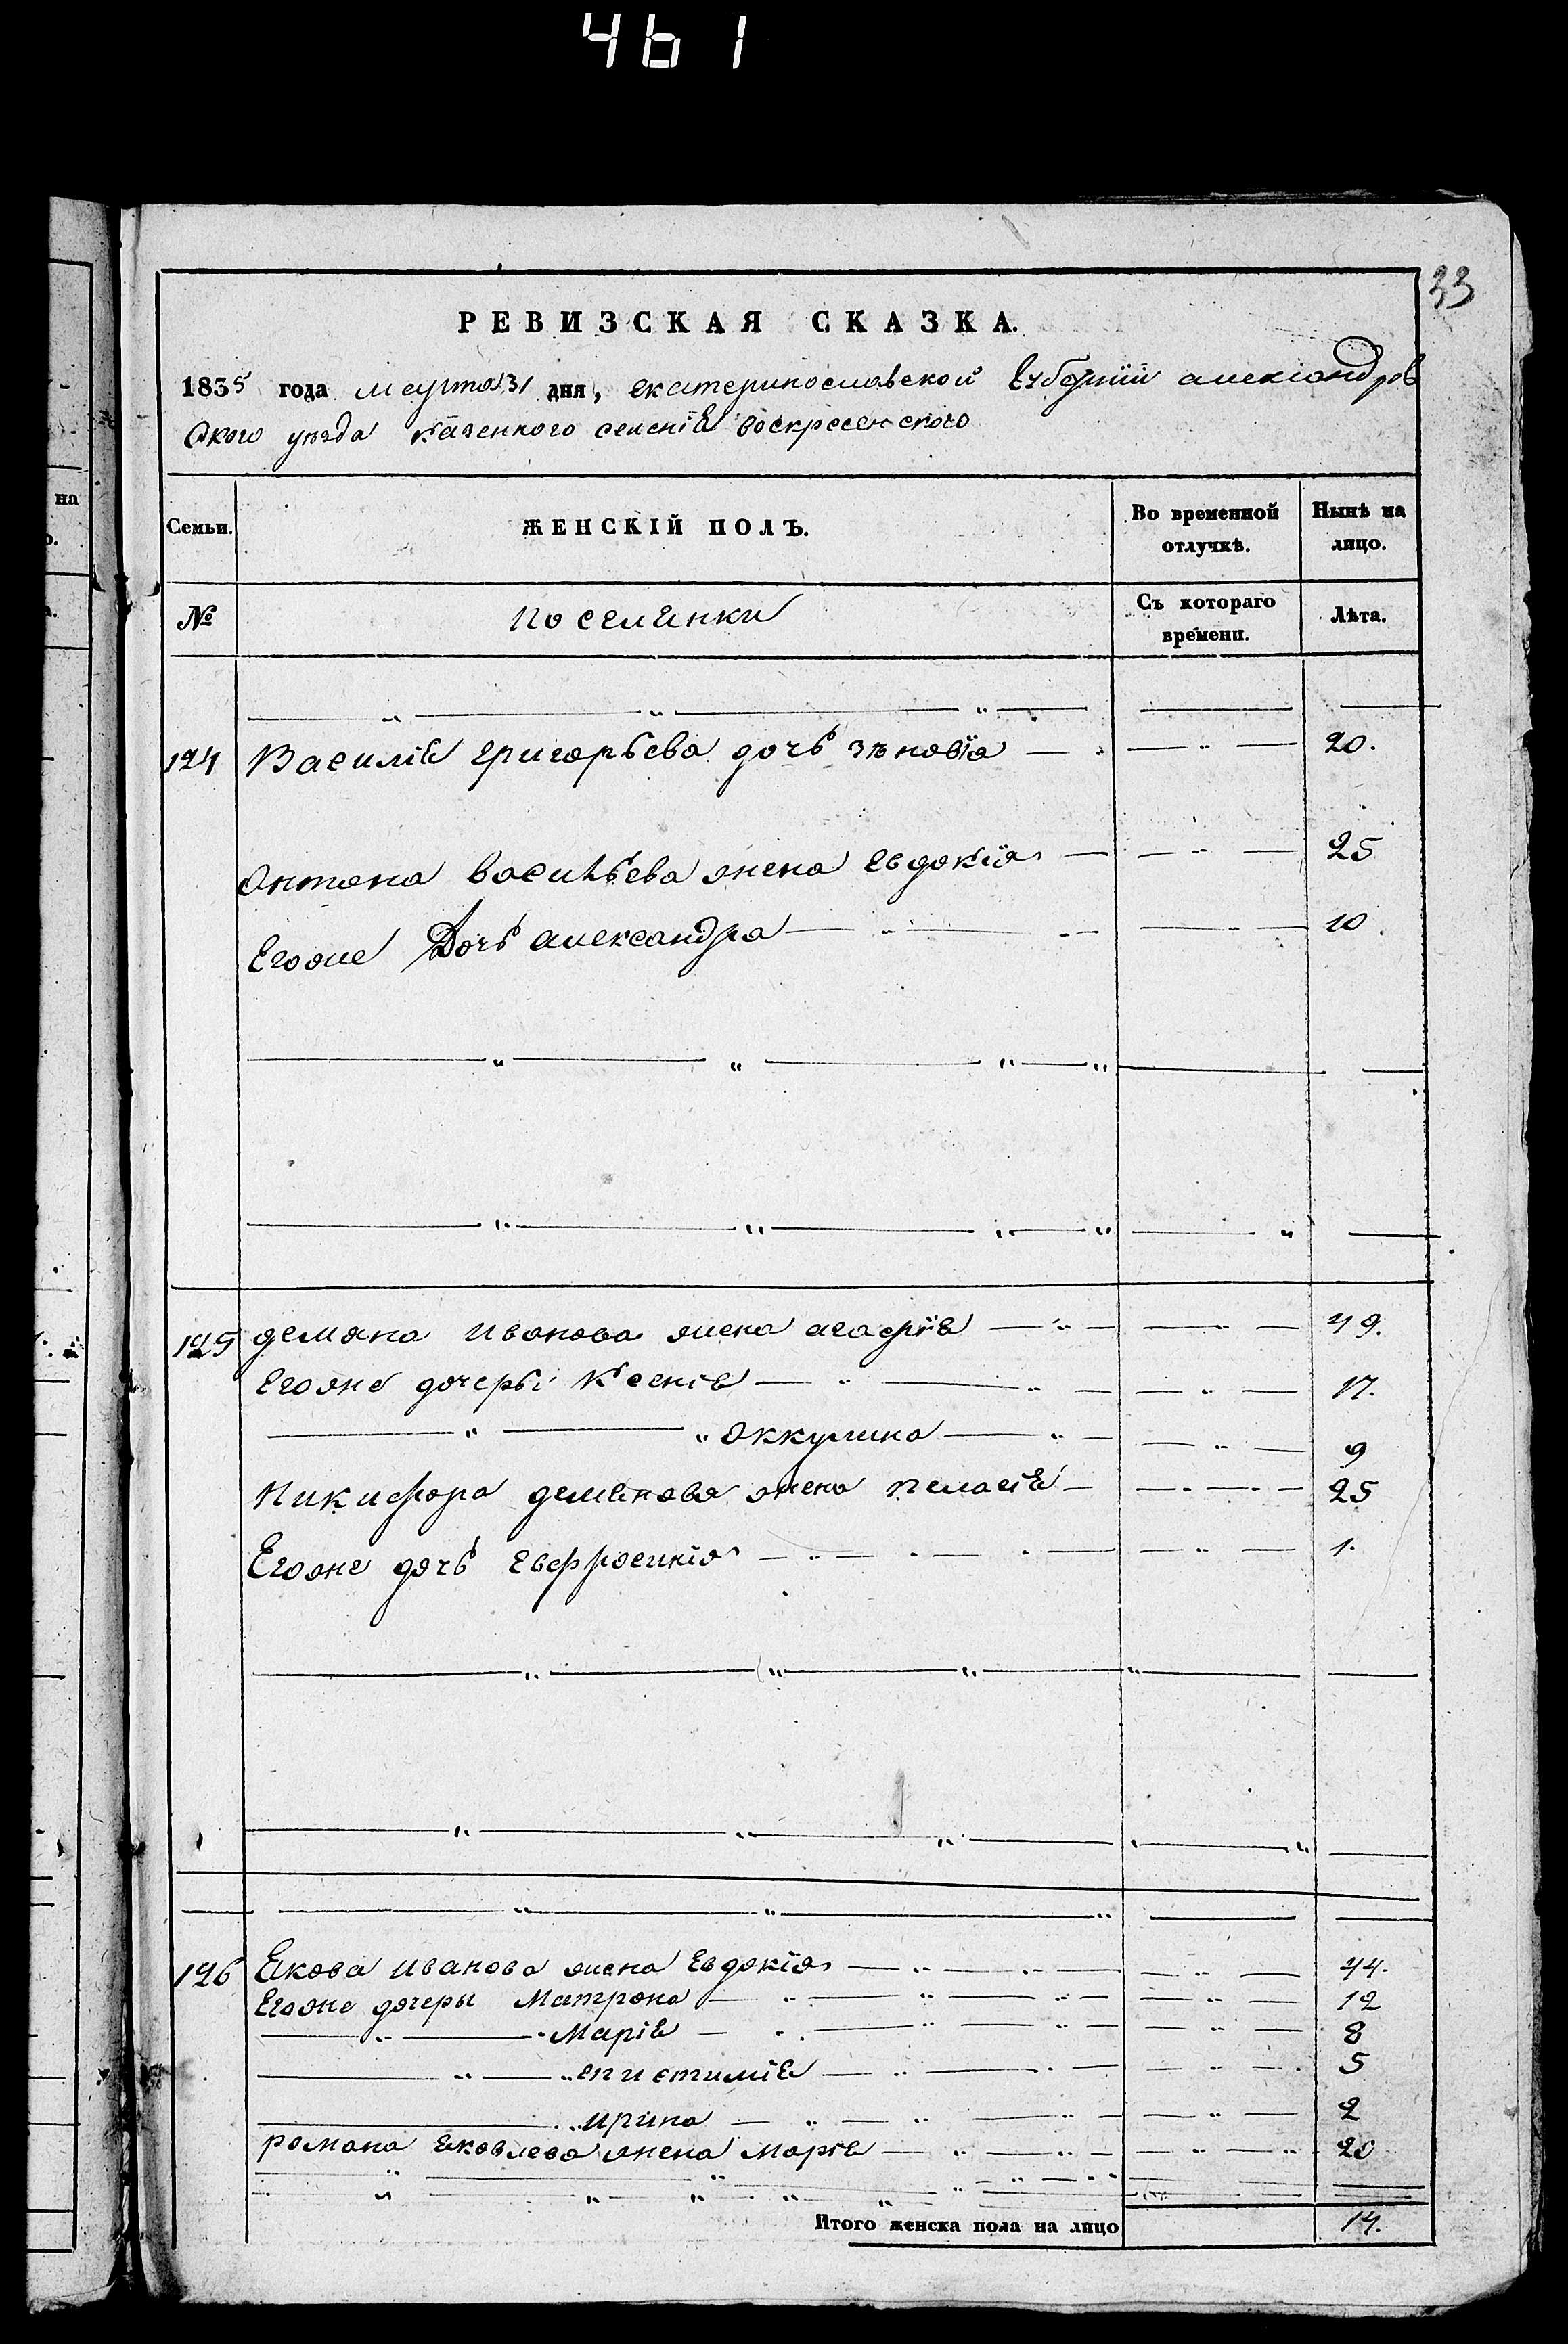 461
33
РЕВИЗСКАЯ СКАЗКА.
1835 года марта 31 дня, екатеринославской Губернии александров
ского уезда казенного селения воскресенского
Семьи. ЖЕНСКІЙ ПОЛЪ. Во временной отлучкѣ. Нынѣ на лицо.
№ поселянки Съ котораго времени. Лѣта.
124 Василия григорьева дочь зѣновїа 20.
Антона васильева жена евдокїя 25
Егоже Дочь александра 10
125 демяна иванова жена агафїя 49.
Егоже дочерьи Ксения 17.
Аккулина 9
Никифора демянова жена пелагія 25
Егоже дочь евфросинія 1.
126 Якова иванова жена Евдокїя 44.
Егоже дочеры Матрона 12
Марія 8
епистимія 5
ирина 2
романа яковлева жена марія 20
Итого женска пола на лицо 14.
на